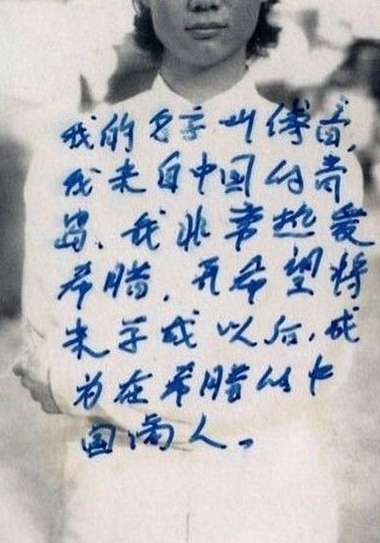 我的名字叫
我来自中国的青
岛、我非常热爱
希腊,并希望将
来学成以后,成
为在希腊的中
国商人。